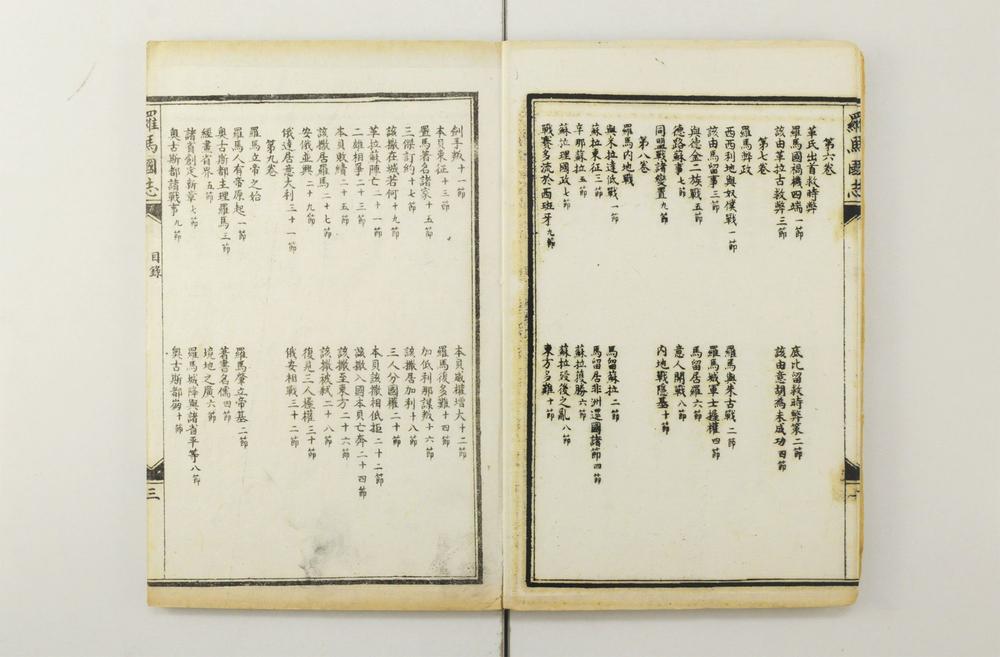 羅馬國志
第六卷
革氏出首救時弊
羅馬國禍機四端一節
底比留救時弊策二節
該由革拉古救弊三節
該由意胡為未成功四節
第七卷
羅馬弊政
西西利地與奴僕戰一節
羅馬與朱古戰二節
該由馬留事三節
羅馬城軍士攝權四節
與德金二族戰五節
馬留居羅六節
德路蘇事七節
意人開戰八節
同盟戰諸變置九節
內地戰隱基十節
第八卷
羅馬內地戰
與米拉達低戰一節
馬留蘇拉二節
蘇拉東征三節
馬留居非洲還國諸節四節
辛那蘇拉五節
蘇拉獲勝六節
蘇拉理國政七節
蘇拉歿後之亂八節
戰賽多流於西班牙九節
東方多難十節
劍手叛十一節
本貝威權增大十二節
本貝東征十三節
羅馬後多難十四節
羅馬著名諸家十五節
加低利那謀叛十六節
三傑訂約十七節
該撒居加利十八節
該撒在城若何十九節
三人分國權二十節
革拉蘇陣亡二十一節
本貝該撒相低拒二十二節
二雄相爭二十三節
該撒入國本貝亡奔二十四節
本貝敗績二十五節
該撒至東方二十六節
該撒居羅馬二十七節
該撒被弒二十八節
安俄並興二十九節
復見三人攝權三十節
俄達居意大利三十一節
俄安相戰三十二節
第九卷
羅馬立帝之始
羅馬人有帝原起一節
羅馬肇立帝基二節
奧古斯都主理羅馬三節
著書名儒四節
經畫省界五節
境地之廣六節
諸省創定新章七節
羅馬城降與諸省平等八節
奧古斯都諸戰事九節
奧古斯都崩十節
羅馬國志
目錄
三